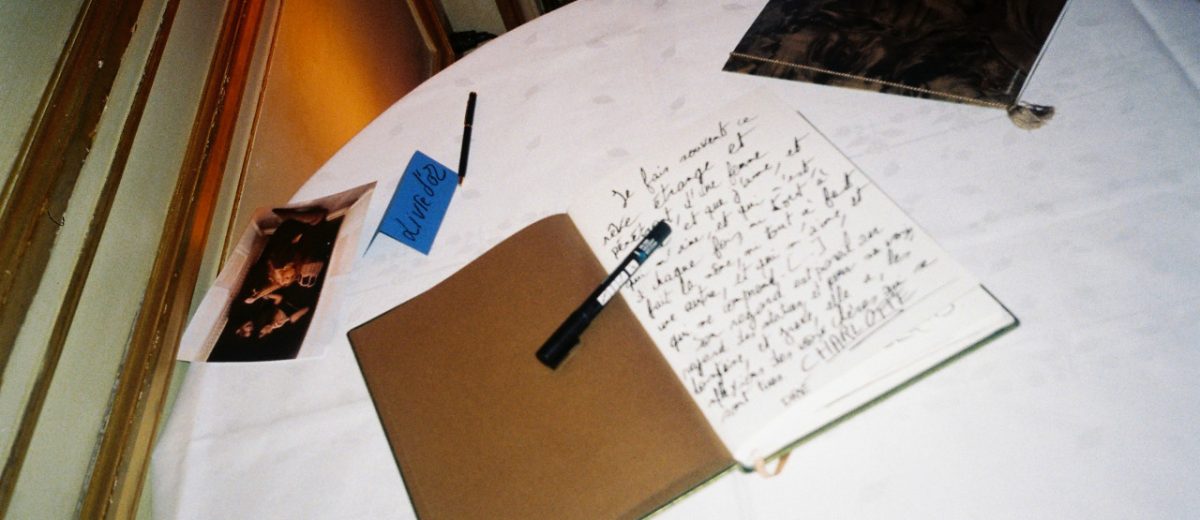 LIVRE d'OR
Je fais souvent ce
rêve étrange et
d'une femme
et que j'aime, et
qui m'aime, et qui n'est,
à chaque fois, ni tout à
fait la même, ni tout à fait
une autre, et qui m'aime, et
qui me comprend [...]
Son regard est pareil au
regard des statues et pour sa voix,
lointaine, et grave, elle a, les
des voix chères qui se
sont tues CHARLOTTE